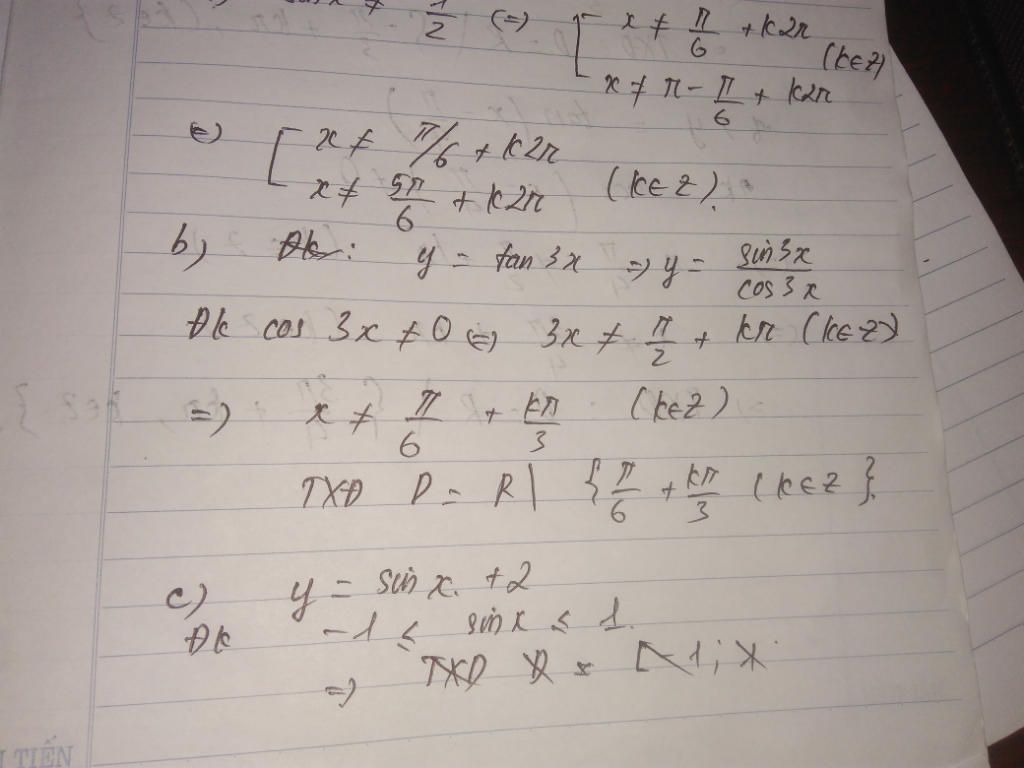 sinx ≠ 1/2 (=) [ x ≠ π/6 + k2π
x ≠ π - π/6 + k2π (k∈Z)
(=) [ x ≠ π/6 + k2π
x ≠ 5π/6 + k2π (k∈Z).
b) Đk: y = tan3x => y = sin3x/cos3x
Đk cos 3x ≠ 0 (=) 3x ≠ π/2 + kπ (k∈Z)
=) x ≠ π/6 + kπ/3 (k∈Z)
TXĐ D = R \ {π/6 + kπ/3 (k∈Z}.
c) y = sinx. +2
Đk -1 ≤ sinx ≤ 1.
=) TXD D = [-1; X
TIẾN